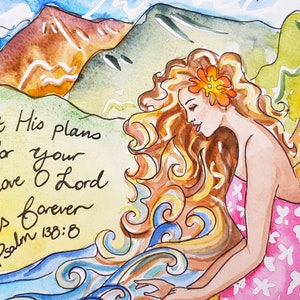 His plans
for your
love O Lord
is forever
Psalm 138:8